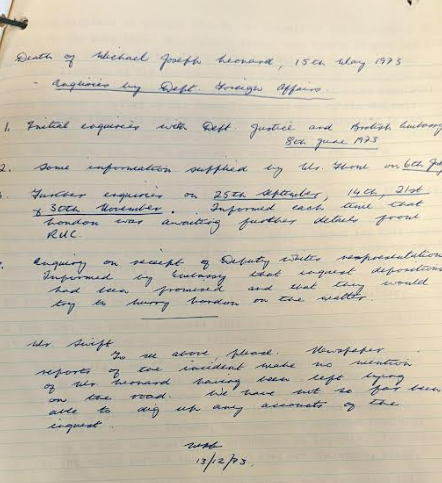 Death of Michael Joseph Leonard, 15th May 1973
- Enquiries by Dept. Foreign Affairs.
1. Initial enquiries with Dept. Justice and British Embassy
8th June 1973
2. Some information supplied by Mr. on 6th
Further enquiries on 25th September, 14th, 21st
& 30th November. Informed each time that
London was awaiting further details from
RUC.
Enquiry on receipt of Deputy White's representations
Informed by Embassy that inquest depositions
had been promised and that they would
try to hurry London on the matter.
Mr Swift
To see above please. Newspaper
reports of the incident make no mention
of Mr. Leonard having been left lying
on the road. We have not so far been
able to dig up any accounts of the
inquest.
13/12/73.